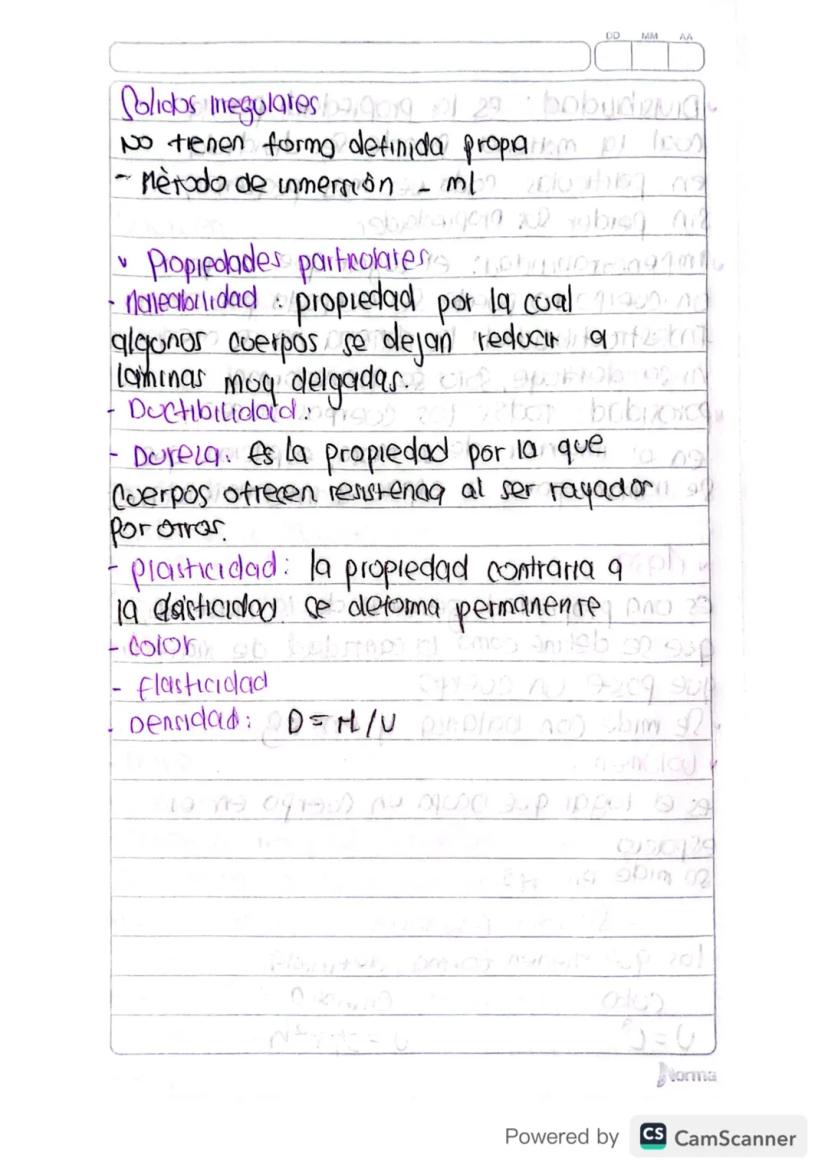 DD MM AA
Solidos irregulares
No tienen forma definida propia
- Mètodo de inmersión - ml
v Propiedades particulares
- Maleabilidad : propiedad por la cual
algunos cuerpos se dejan reducir a
laminas muy delgadas.
- Ductibilidad:
- Dureza. Es la propiedad por la que
cuerpos ofrecen resistencia al ser rayador
por otros.
- plasticidad: la propiedad contraria a
la elasticidad. se deforma permanente
- color
- Elasticidad
- Densidad: D = M/V
Norma
Powered by CS CamScanner